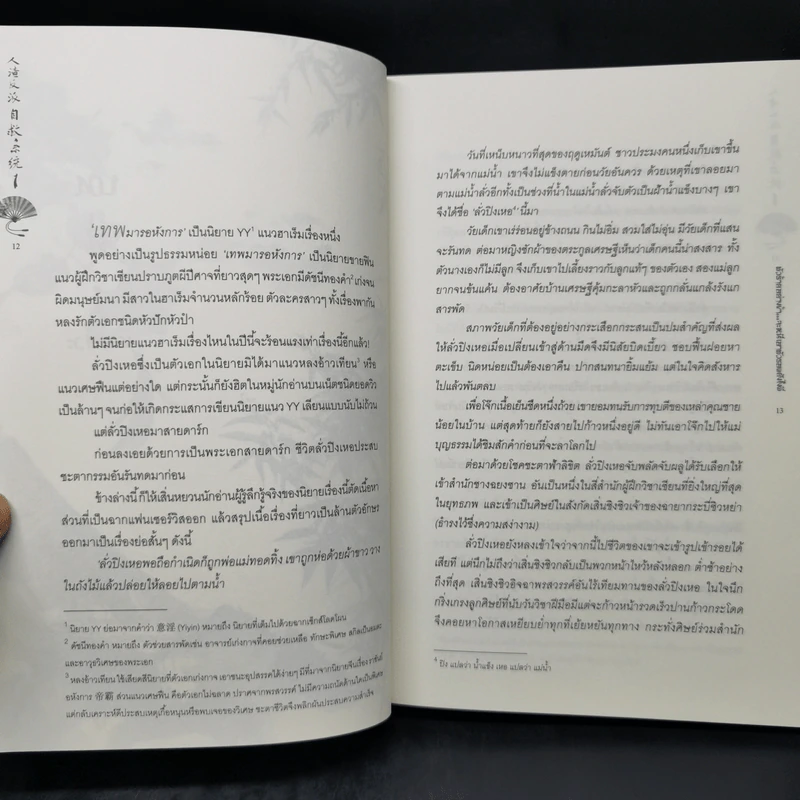 人渣反派自救系統 1
12
'เทพมารอหังการ' เป็นนิยาย YY¹ แนวฮาเร็มเรื่องหนึ่ง
พูดอย่างเป็นรูปธรรมหน่อย 'เทพมารอหังการ' เป็นนิยายขายฟิน
แนวผู้ฝึกวิชาเซียนปราบภูตผีปีศาจที่ยาวสุดๆ พระเอกมีดัชนีทองคำ² เก่งจน
ผิดมนุษย์มนา มีสาวในฮาเร็มจำนวนหลักร้อย ตัวละครสาวๆ ทั้งเรื่องพากัน
หลงรักตัวเอกชนิดหัวปักหัวปำ
ไม่มีนิยายแนวฮาเร็มเรื่องไหนในปีนี้จะร้อนแรงเท่าเรื่องนี้อีกแล้ว!
ลั่วปิงเหอซึ่งเป็นตัวเอกในนิยายมิได้มาแนวหลงอ้าวเทียน³ หรือ
แนวเศษฟืนแต่อย่างใด แต่กระนั้นก็ยังฮิตในหมู่นักอ่านบนเน็ตชนิดยอดวิว
เป็นล้านๆ จนก่อให้เกิดกระแสการเขียนนิยายแนว YY เลียนแบบนับไม่ถ้วน
แต่ลั่วปิงเหอมาสายดาร์ก
ก่อนลงเอยด้วยการเป็นพระเอกสายดาร์ก ชีวิตลั่วปิงเหอประสบ
ชะตากรรมอันรันทดมาก่อน
ข้างล่างนี้ก็ให้เสิ่นหยวนนักอ่านผู้รู้ลึกรู้จริงของนิยายเรื่องนี้ตัดเนื้อหา
ส่วนที่เป็นฉากแฟนเซอร์วิสออก แล้วสรุปเนื้อเรื่องที่ยาวเป็นล้านตัวอักษร
ออกมาเป็นเรื่องย่อสั้นๆ ดังนี้
'ลั่วปิงเหอพอถือกำเนิดก็ถูกพ่อแม่ทอดทิ้ง เขาถูกห่อด้วยผ้าขาว วาง
ในถังไม้แล้วปล่อยให้ลอยไปตามน้ำ
¹ นิยาย YY ย่อมาจากคำว่า 意淫 (Yiyin) หมายถึง นิยายที่เติมไปด้วยฉากเซ็กส์โดดโผน
² ดัชนีทองคำ หมายถึง ตัวช่วยสารพัดเช่น อาจารย์เก่งกาจที่คอยช่วยเหลือ ทักษะพิเศษ สถิตเป็นอมตะ
และอาวุธวิเศษของพระเอก
³ หลงอ้าวเทียน ใช้เสียดสีนิยายที่ตัวเอกเก่งกาจ เอาชนะอุปสรรคได้ง่ายๆ มีที่มาจากนิยายจีนเรื่อง ราชันย์
อหังการ 帝霸 ส่วนแนวเศษฟืน คือตัวเอกไม่ฉลาด ปราศจากพรสวรรค์ ไม่มีความถนัดด้านใดเป็นพิเศษ
แต่กลับเคราะห์ดีประสบเหตุเกื้อหนุนหรือพบเจอของวิเศษ ชะตาชีวิตจึงพลิกผันประสบความสำเร็จ
วันที่เหน็บหนาวที่สุดของฤดูเหมันต์ ชาวประมงคนหนึ่งเก็บเขาขึ้น
มาได้จากแม่น้ำ เขาจึงไม่แข็งตายก่อนวัยอันควร ด้วยเหตุที่เขาลอยมา
ตามแม่น้ำลั่วอีกทั้งเป็นช่วงที่น้ำในแม่น้ำลั่วจับตัวเป็นฝ้าน้ำแข็งบางๆ เขา
จึงได้ชื่อ 'ลั่วปิงเหอ⁴' นี้มา
วัยเด็กเขาเร่ร่อนอยู่ข้างถนน กินไม่อิ่ม สวมใส่ไม่อุ่น มีวัยเด็กที่แสน
จะรันทด ต่อมาหญิงซักผ้าของตระกูลเศรษฐีเห็นว่าเด็กคนนี้น่าสงสาร ทั้ง
ตัวนางเองก็ไม่มีลูก จึงเก็บเขาไปเลี้ยงราวกับลูกแท้ๆ ของตัวเอง สองแม่ลูก
ยากจนข้นแค้น ต้องอาศัยบ้านเศรษฐีคุ้มกะลาหัวและถูกกลั่นแกล้งรังแก
สารพัด
สภาพวัยเด็กที่ต้องอยู่อย่างกระเสือกกระสนเป็นปมสำคัญที่ส่งผล
ให้ลั่วปิงเหอเมื่อเปลี่ยนเข้าสู่ด้านมืดจึงมีนิสัยบิดเบี้ยว ชอบฟื้นฝอยหา
ตะเข็บ นิดหน่อยเป็นต้องเอาคืน ปากสนทนายิ้มแย้ม แต่ในใจคิดสังหาร
ไปแล้วพันตลบ
เพื่อโจ๊กเนื้อเย็นชืดหนึ่งถ้วย เขายอมทนรับการทุบตีของเหล่าคุณชาย
น้อยในบ้าน แต่สุดท้ายก็ยังสายไปก้าวหนึ่งอยู่ดี ไม่ทันเอาโจ๊กไปให้แม่
บุญธรรมได้ชิมสักคำก่อนที่จะลาโลกไป
ต่อมาด้วยโชคชะตาฟ้าลิขิต ลั่วปิงเหอจับพลัดจับผลูได้รับเลือกให้
เข้าสำนักชางฉยงซาน อันเป็นหนึ่งในสี่สำนักผู้ฝึกวิชาเซียนที่ยิ่งใหญ่ที่สุด
ในยุทธภพ และเข้าเป็นศิษย์ในสังกัดเสิ่นชิงชิวเจ้าของฉายากระบี่ซิวหย่า
(ธำรงไว้ซึ่งความสง่างาม)
ลั่วปิงเหอยังหลงเข้าใจว่าจากนี้ไปชีวิตของเขาจะเข้ารูปเข้ารอยได้
เสียที แต่นึกไม่ถึงว่าเสิ่นชิงชิวกลับเป็นพวกหน้าไหว้หลังหลอก ต่ำช้าอย่าง
ถึงที่สุด เสิ่นชิงชิวอิจฉาพรสวรรค์อันไร้เทียมทานของลั่วปิงเหอ ในใจนึก
กริ่งเกรงลูกศิษย์ที่นับวันวิชาฝีมือมีแต่จะก้าวหน้ารวดเร็วปานก้าวกระโดด
จึงคอยหาโอกาสเหยียบย่ำทุกที่เย้ยหยันทุกทาง กระทั่งศิษย์ร่วมสำนัก
⁴ ปิง แปลว่า น้ำแข็ง เหอ แปลว่า แม่น้ำ
13